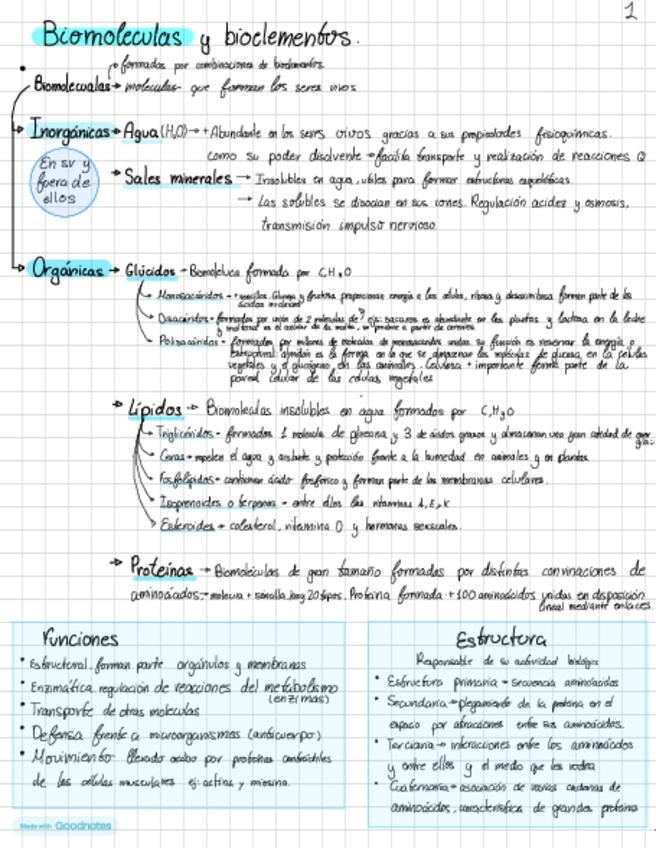 1
Biomoleculas y bioclementos.
formadas por combinaciones de bioelementos.
Biomoleculas → moleculas que forman los seres vivos
Inorgánicas → Agua (H₂O) → + Abundante en los seres vivos gracias a sus propiedades fisicoquímicas.
como su poder disolvente → facilita transporte y realización de reacciones Q
En sv y
fuera de
ellos
→ Sales minerales → Insolubles en agua, utiles para formar estructuras esqueléticas
→ Las solubles se disocian en sus iones. Regulación acidez y osmosis,
transmisión impulso nervioso.
Orgánicas → Glúcidos → Biomoleluca formada por C, H, O
Monosacáridos → + sencillos. Glucosa y fructosa proporcionan energía a las células, ribosa y desoxirribosa forman parte de los
ácidos nucleicos
Disacáridos → formados por unión de 2 moleculas de ? ej: sacarosa es abundante en las plantas y lactosa en la leche
y maltosa es el azúcar de la malta, se produce a partir de cereales
Polisacáridos → formados por millones de moleculas de monosacáridos unidas su función es reservar la energía o
estructural: almidón es la forma en la que se almacenan las moléculas de glucosa en la células
vegetales y el glucógeno, en las animales. Celulosa + importante forma parte de la
pared celular de las celulas vegetales
→ Lípidos → Biomoleculas insolubles en agua formados por C, H y O
Triglicéridos → formados 1 molecula de glicerina y 3 de ácidos grasos y almacenan una gran cantidad de
Ceras → repelen el agua y aislante y protección frente a la humedad en animales y en plantas
Fosfolípidos → contienen ácido fosfórico y forman parte de las membranas celulares.
Isoprenoides o terpenos → entre ellos las vitaminas A, E, K
Esteroides → colesterol, vitamina D y hormonas sexuales.
→ Proteínas → Biomoléculas de gran tamaño formadas por distintas convinaciones de
aminoácidos → molecula + sencilla, hay 20 tipos. Proteina formada + 100 aminoácidos unidas en disposición
lineal mediante enlaces.
Funciones
• Estructural. forman parte orgánulos y membranas
• Enzimática. regulación de reacciones del metabolismo
(enzimas)
• Transporte de otras moleculas
• Defensa frente a microorganismos (anticuerpo)
• Movimiento llevado acabo por proteinas contráctiles
de las células musculares ej: actina y miosina.
Estructura
Responsable de su actividad biológica
• Estructura primaria → secuencia aminoácidos
• Secundaria → plegamiento de la proteina en el
espacio por atracciones entre sus aminoácidos.
• Terciaria → interacciones entre los aminoácidos
y entre ellos y el medio que les rodea
• Cuaternaria → asociación de varias cadenas de
aminoácidos, característica de grandes proteínas
Made with Goodnotes